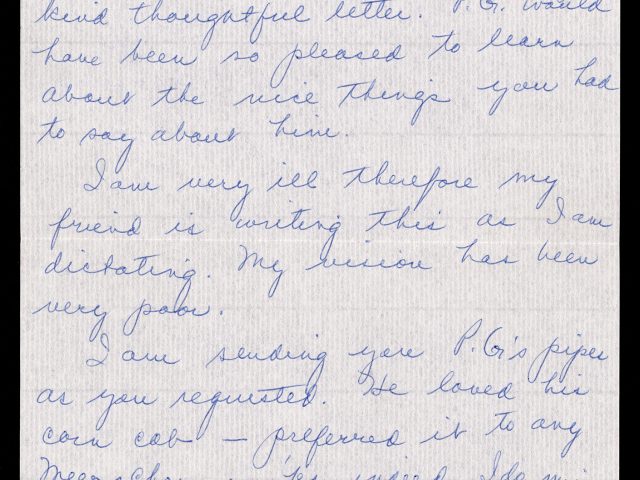 kind thoughtful letter. P.G. would
have been so pleased to learn
about the nice things you had
to say about him.
I am very ill therefore my
friend is writing this as I am
dictating. My vision has been
very poor.
I am sending you P.G's pipes
as you requested. He loved his
corn cob – preferred it to any
indeed. I do